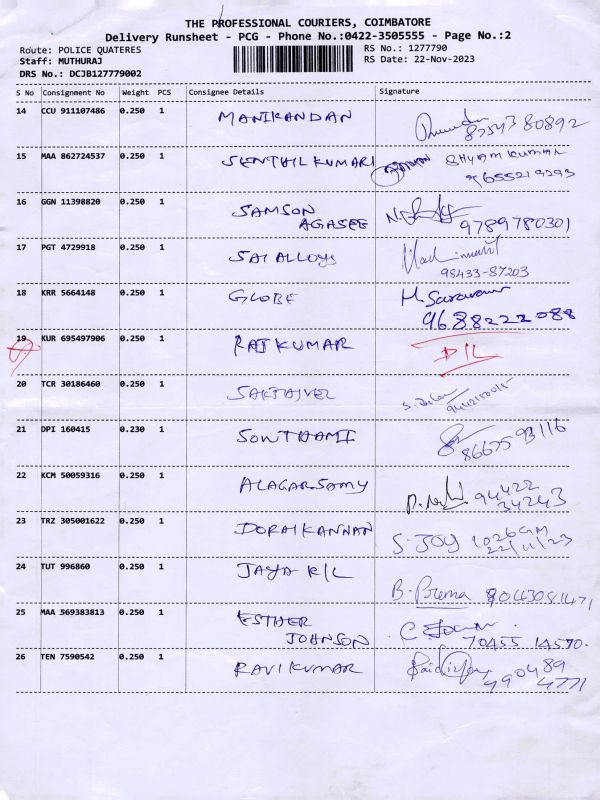 THE PROFESSIONAL COURIERS, COIMBATORE
Delivery Runsheet - PCG - Phone No.:0422-3505555 - Page No.:2
Route: POLICE QUATERES RS No.: 1277790
Staff: MUTHURAJ RS Date: 22-Nov-2023
DRS No.: DCJB127779002
S No Consignment No Weight PCS Consignee Details Signature
14 CCU 911107486 0.250 1 MANIKANDAN
87543 80892
15 MAA 862724537 0.250 1 SENTHILKUMARI SHYAM KUMAR
9655219293
16 GGN 11398820 0.250 1 SAMSON
AGASEE 9789780301
17 PGT 4729918 0.250 1 SAI ALLOYS
98433-87203
18 KRR 5664148 0.250 1 GLOBE M. Saravanan
9688222088
19 KUR 695497906 0.250 1 RAJKUMAR D/L
20 TCR 30186460 0.250 1
21 DPI 160415 0.230 1
86675 93116
22 KCM 50059316 0.250 1 ALAGARSAMY 94422
34243
23 TRZ 305001622 0.250 1 DORAIKANNAN S. JOY
22/11/23
24 TUT 996860 0.250 1 JAYA R/L B. Prema 9043081471
25 MAA 569383813 0.250 1 ESTHER
JOHNSON 70455 14570.
26 TEN 7590542 0.250 1 RAVIKUMAR 990489
4771